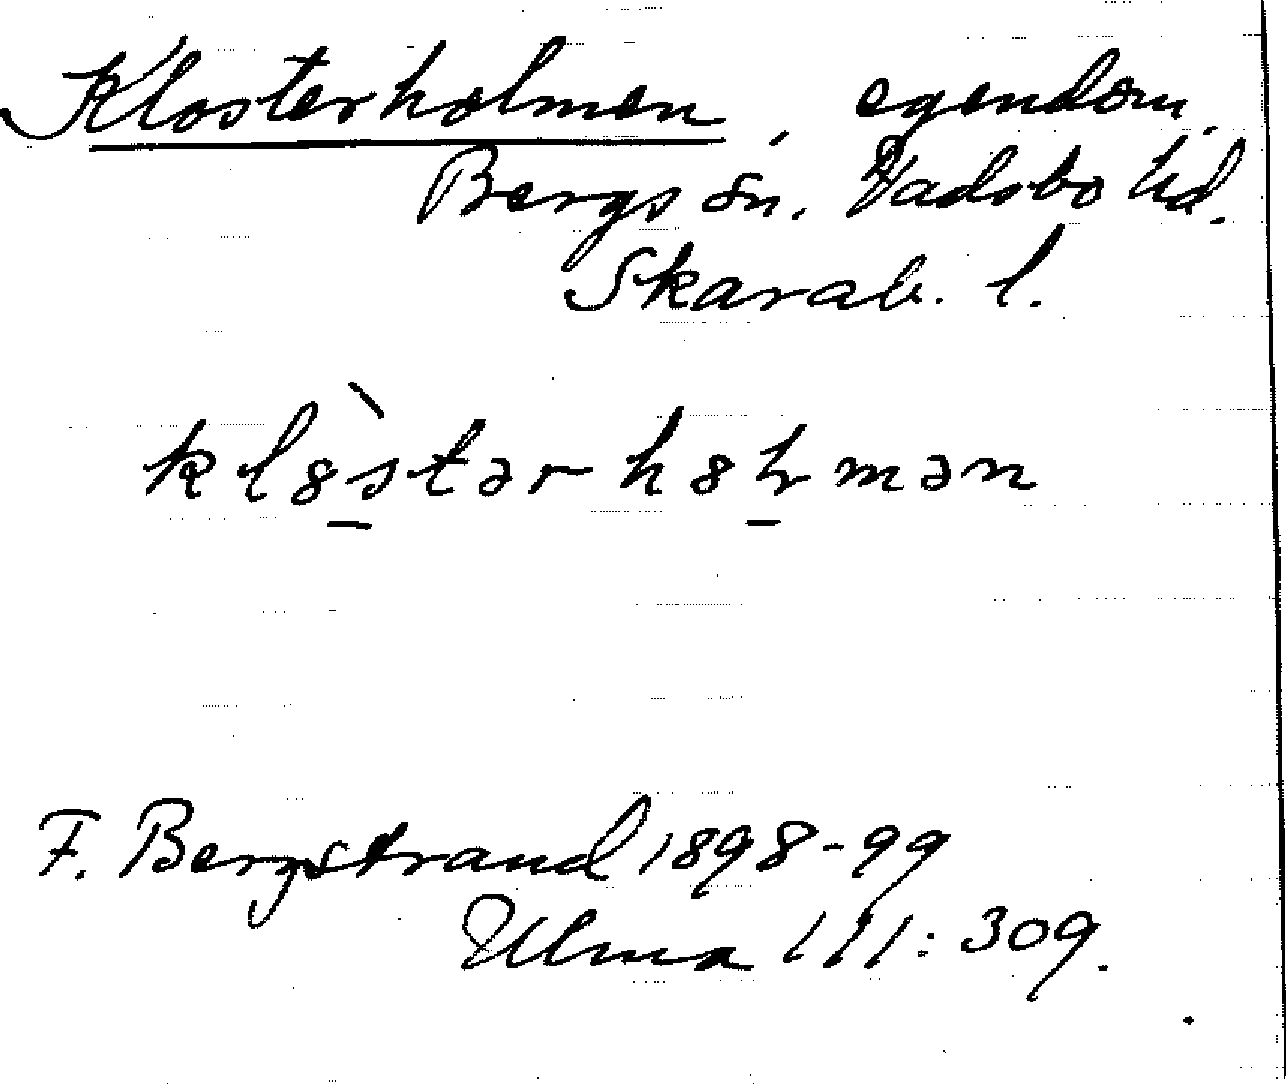 Klosterholmen, egendom,
Bergs sn. Vadsbo hd.
Skarab. l.
kl8̀stər h8ɽmən
F. Bergstrand 1898-99
Ulma 111:309.